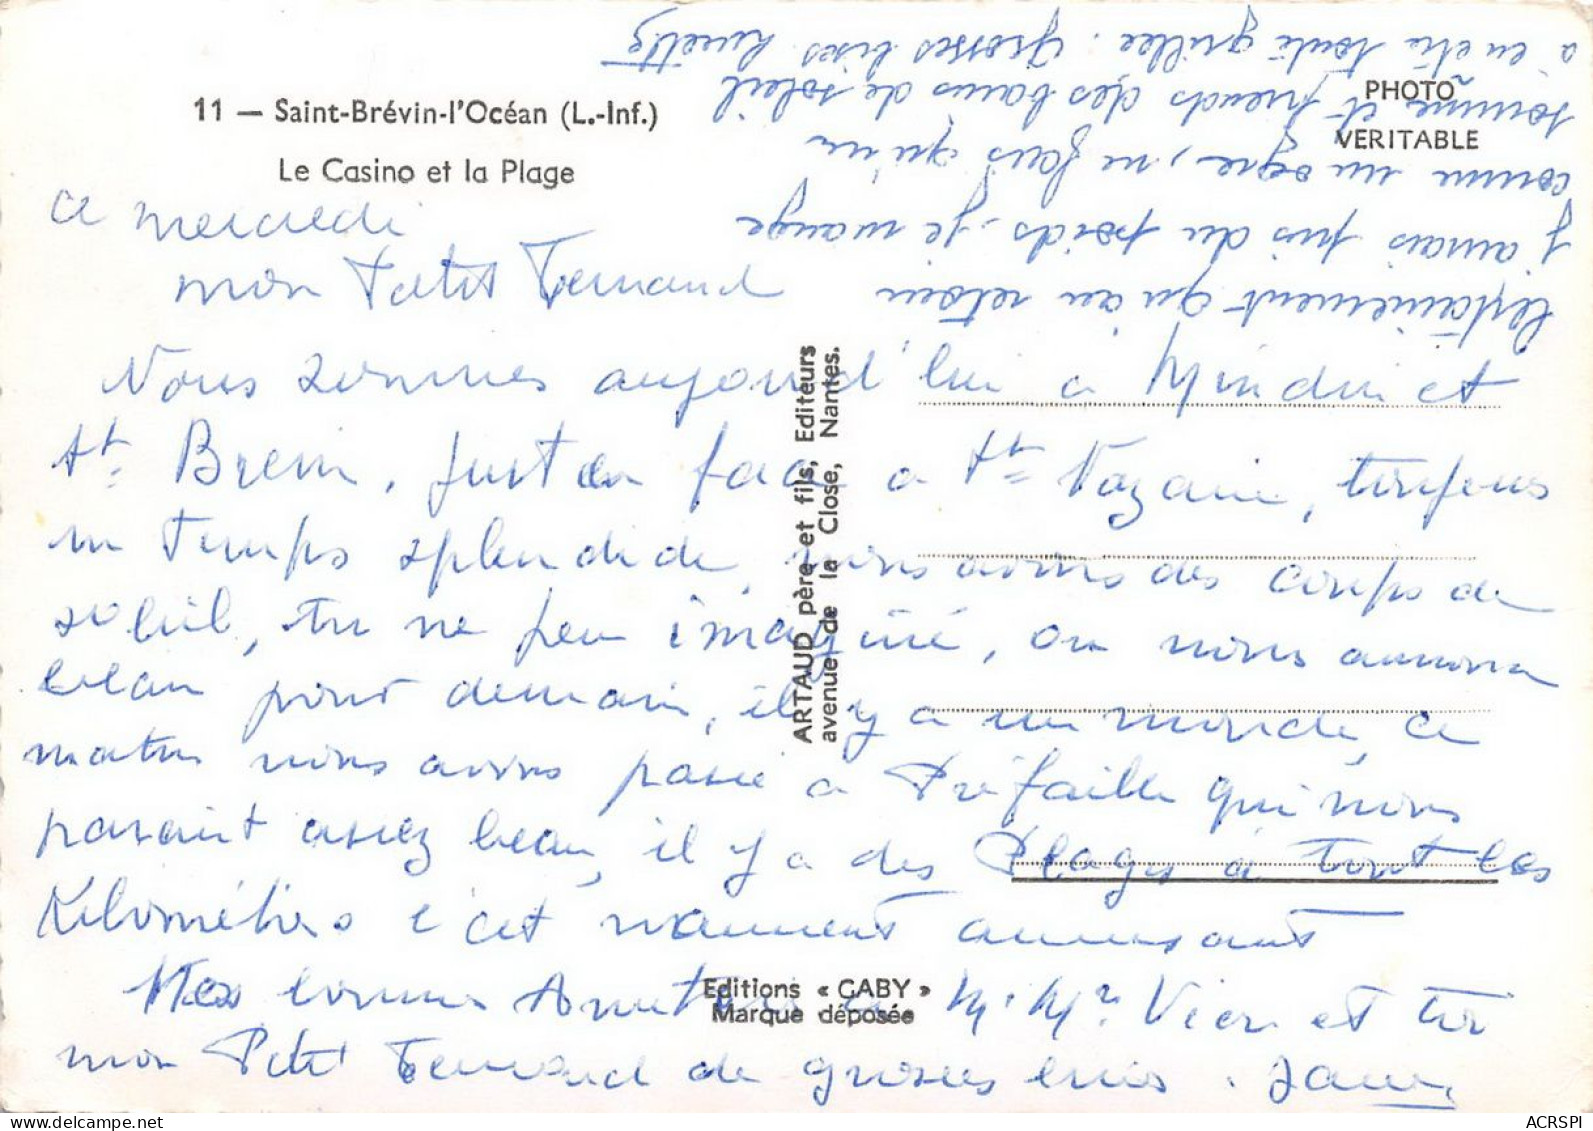 11 — Saint-Brévin-l'Océan (L.-Inf.)
Le Casino et la Plage
PHOTO
VERITABLE
ce mercredi
mon Petit Fernand
Nous sommes aujourd'hui a Mindin et
St. Brevin, juste en face a St Nazaire, toujours
un temps splendide, nous avons des coups de
soleil, tu ne peu imaginé, on nous annonce
beau pour demain, il y a un monde, ce
matin nous avons passé a Préfaille qui nous
parait assez beau, il y a des Plages a tout les
Kilométres c'est vraiment amusant
Mes bonnes Amitiés a M. Mr Vier et toi
mon Petit Fernand de grosses bises.
ARTAUD père et fils, Editeurs
avenue de la Close, Nantes.
Editions « GABY »
Marque déposée
certainement qu'au retour
j'aurais pris du poids, je mange
comme un ogre, ne fais qu'un
somme et prends des bains de soleil
a en être toute grillée. Grosses bises
ACRSPI